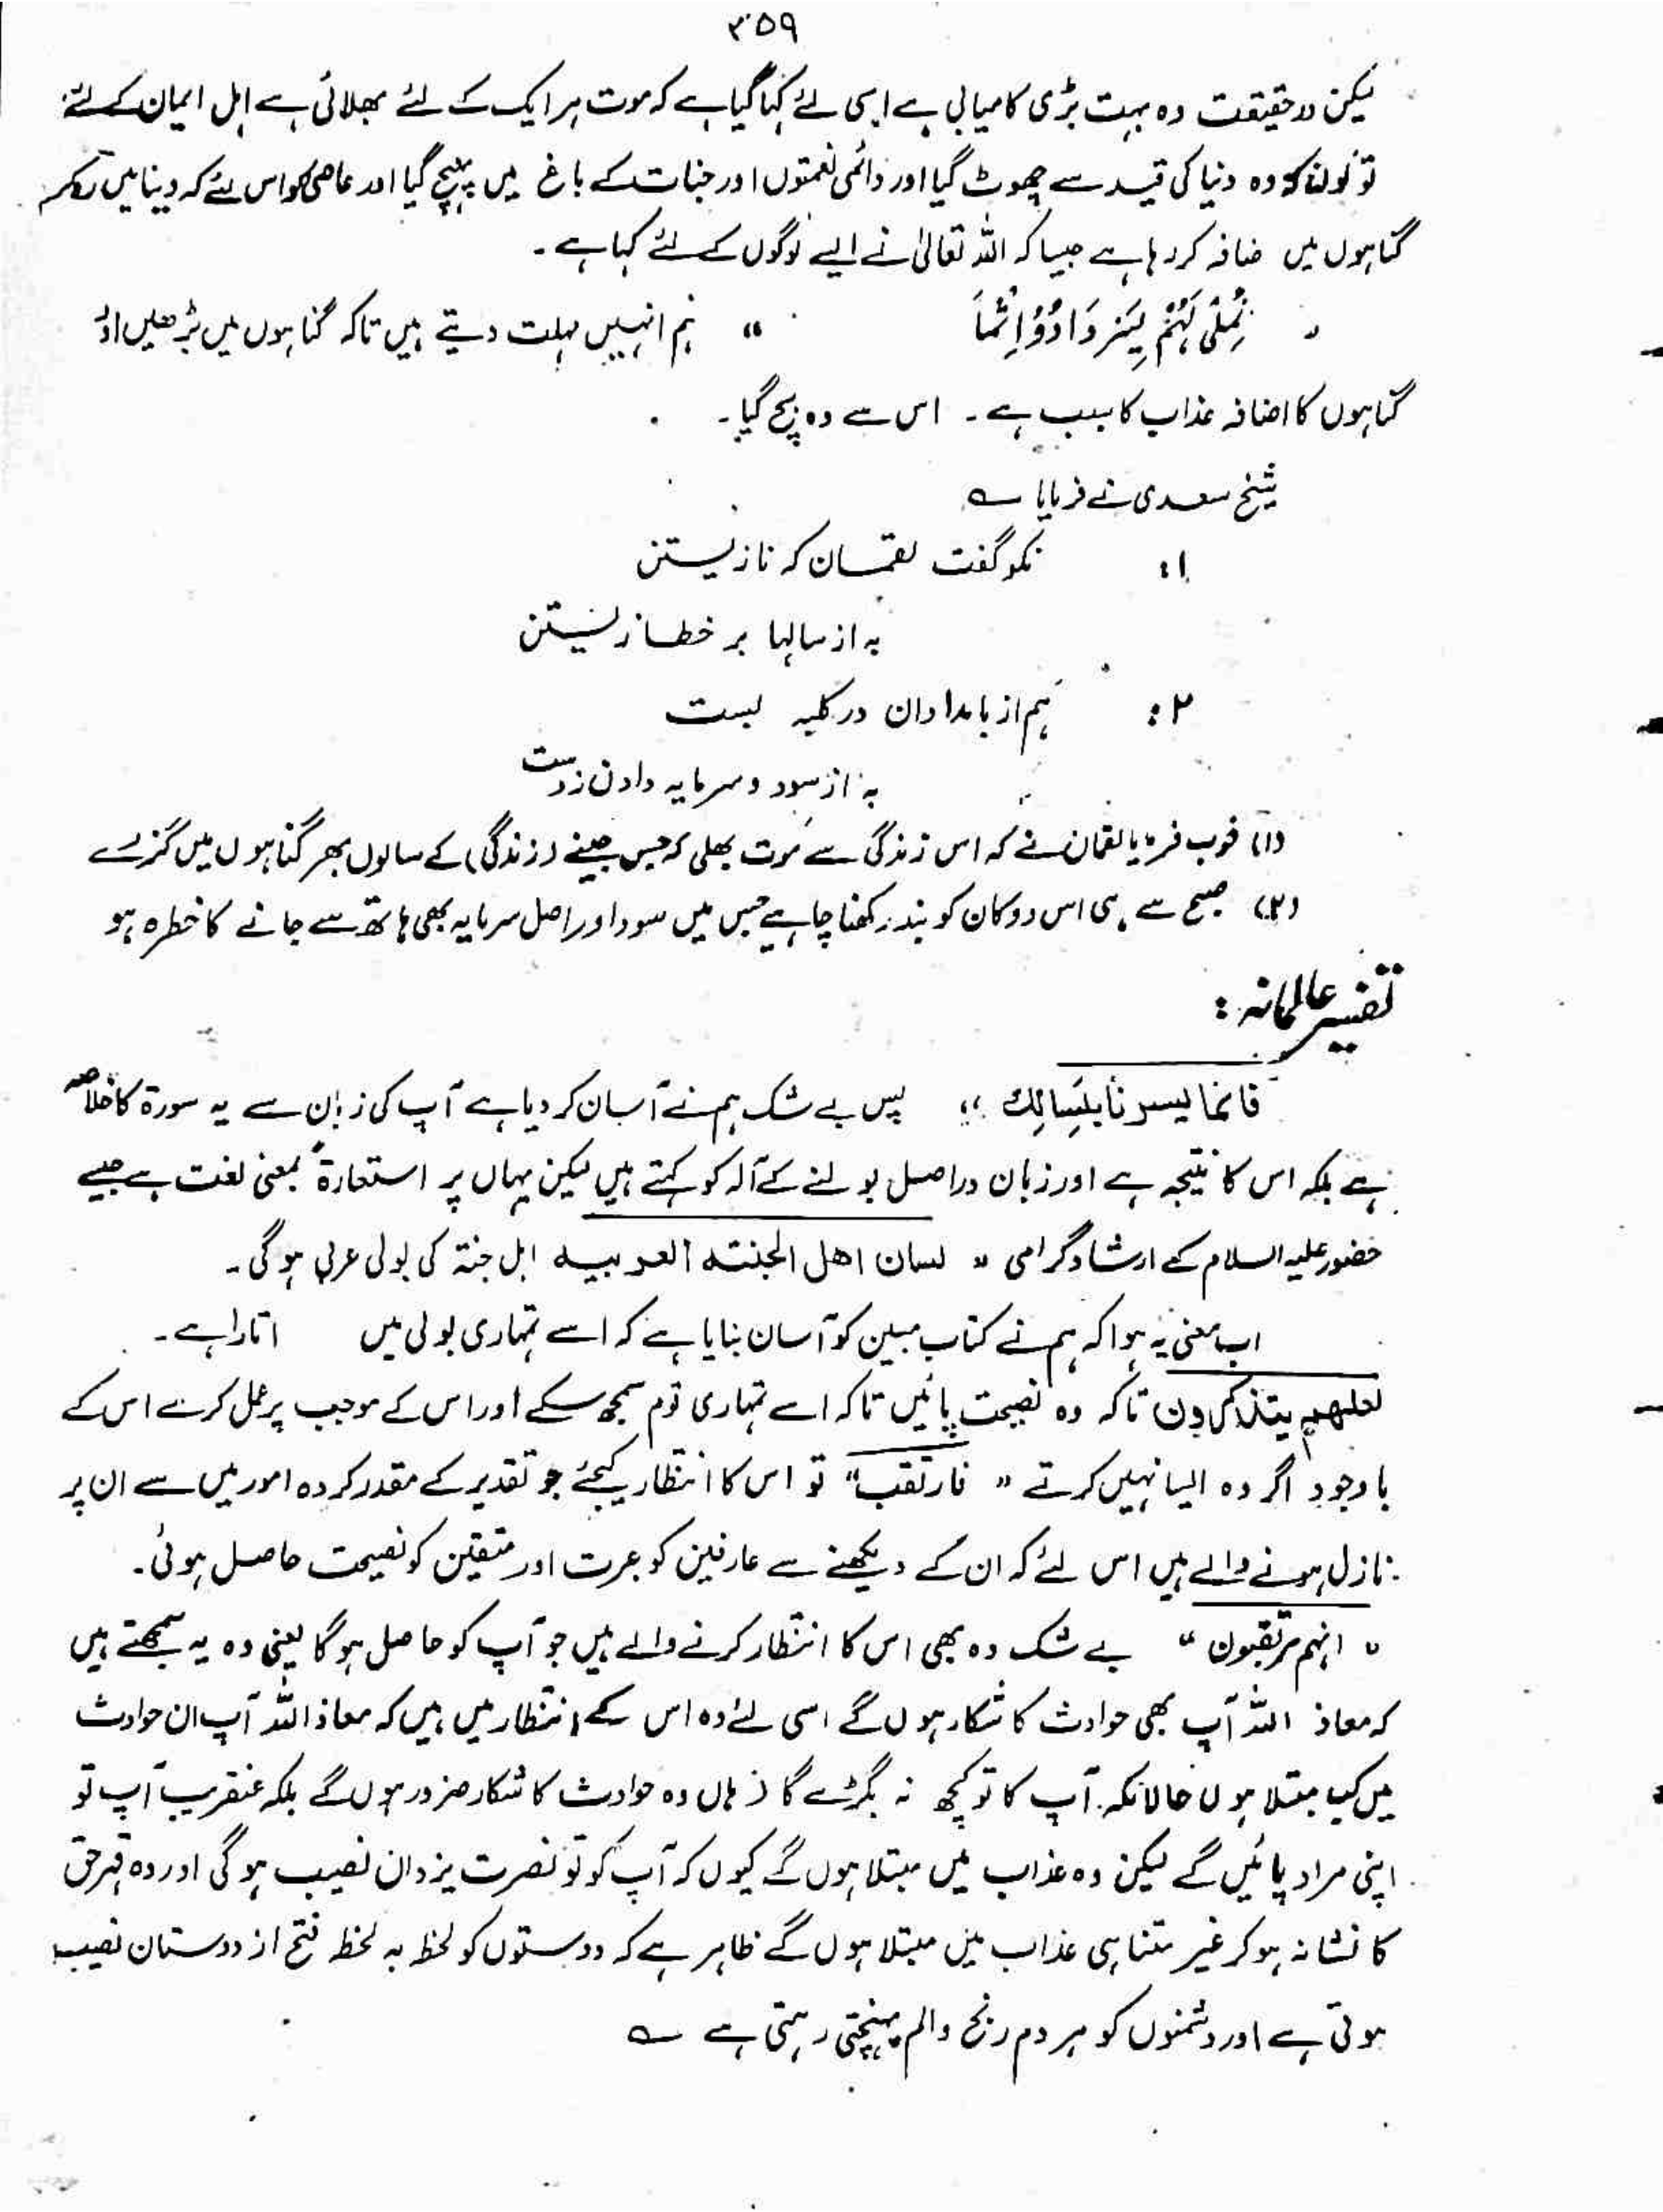 ۳۵۹
لیکن درحقیقت وہ بہت بڑی کامیابی ہے اسی لئے کہا گیا ہے کہ موت ہر ایک کے لئے بھلائی ہے اہل ایمان کے لئے
تو یوں کہ وہ دنیا کی قید سے چھوٹ گیا اور دائمی نعمتوں اور جنات کے باغ میں پہنچ گیا اور عاصی کو اس لئے کہ دینا میں رہ کر
گناہوں میں ضافہ کر رہا ہے جیسا کہ اللہ تعالیٰ نے ایسے لوگوں کے لئے کہا ہے ۔
" نُمْلِیْ لَهُمْ لِيَزْدَادُوْا اِثْمًا " ہم انہیں مہلت دیتے ہیں تاکہ گناہوں میں بڑھیں اور
گناہوں کا اضافہ عذاب کا سبب ہے ۔ اس سے وہ بچ گیا ۔
شیخ سعدی نے فرمایا ؎
۱: نکو گفت لقمان کہ نازیستن
بہ از سالہا بر خطا زیستن
۲: ہم از بامدادان در کلبہ بست
بہ از سود و سرمایہ دادن ز دست
(۱) خوب فرمایا لقمان نے کہ اس زندگی سے موت بھلی کہ جس جینے (زندگی) کے سالوں بھر گناہوں میں گزرے
(۲) صبح سے ہی اس دوکان کو بند رکھنا چاہیے جس میں سود اور اصل سرمایہ بھی ہاتھ سے جانے کا خطرہ ہو
تفسیر عالمانہ :
فانما یسرناہ بلسانک " پس بے شک ہم نے آسان کر دیا ہے آپ کی زبان سے یہ سورۃ کا خلاصہ
ہے بلکہ اس کا نتیجہ ہے اور زبان دراصل بولنے کے آلہ کو کہتے ہیں لیکن یہاں پر استعارۃً بمعنی لغت ہے جیسے
حضور علیہ السلام کے ارشاد گرامی " لسان اھل الجنتہ العربیہ اہل جنۃ کی بولی عربی ہو گی ۔
اب معنی یہ ہوا کہ ہم نے کتاب مبین کو آسان بنایا ہے کہ اسے تمہاری بولی میں اتارا ہے ۔
لعلھم یتذکرون تاکہ وہ نصیحت پائیں تاکہ اسے تمہاری قوم سمجھ سکے اور اس کے موجب پر عمل کرے اس کے
باوجود اگر وہ ایسا نہیں کرتے " فارتقب " تو اس کا انتظار کیجئے جو تقدیر کے مقدر کردہ امور میں سے ان پر
نازل ہونے والے ہیں اس لئے کہ ان کے دیکھنے سے عارفین کو عبرت اور متقین کو نصیحت حاصل ہوئی ۔
" انہم مرتقبون " بے شک وہ بھی اس کا انتظار کرنے والے ہیں جو آپ کو حاصل ہو گا یعنی وہ یہ سمجھتے ہیں
کہ معاذ اللہ آپ بھی حوادث کا شکار ہوں گے اسی لئے وہ اس کے انتظار میں ہیں کہ معاذ اللہ آپ ان حوادث
میں کب مبتلا ہوں حالانکہ آپ کا تو کچھ نہ بگڑے گا ہاں وہ حوادث کا شکار ضرور ہوں گے بلکہ عنقریب آپ تو
اپنی مراد پائیں گے لیکن وہ عذاب میں مبتلا ہوں گے کیوں کہ آپ کو تو نصرت یزدان نصیب ہو گی اور وہ قہر حق
کا نشانہ ہو کر غیر متناہی عذاب میں مبتلا ہوں گے ظاہر ہے کہ دوستوں کو لحظہ بہ لحظہ فتح از دوستان نصیب
ہوتی ہے اور دشمنوں کو ہر دم رنج والم پہنچتی رہتی ہے ؎